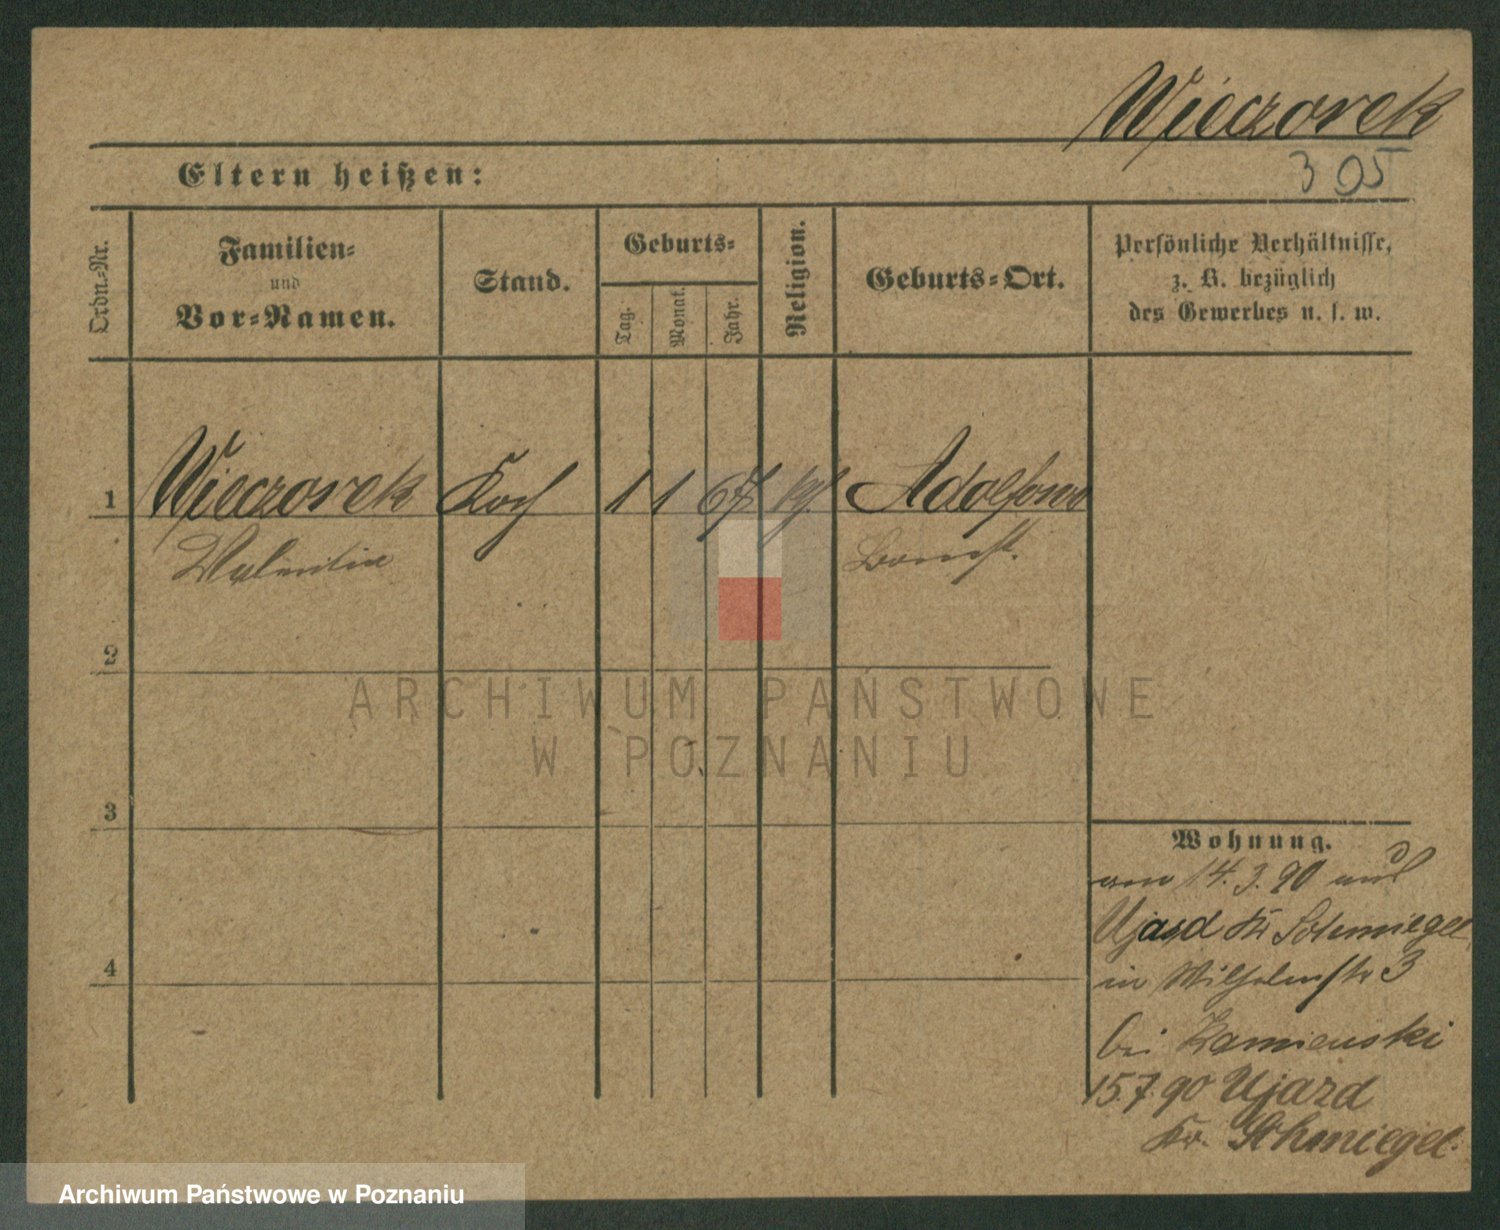 Wieczorek
305
Eltern heißen:
Ordn.-Nr.
Familien-
und
Vor-Namen.
Stand.
Geburts-
Tag.
Monat.
Jahr.
Religion.
Geburts-Ort.
Persönliche Verhältnisse,
z. B. bezüglich
des Gewerbes u. s. w.
1 Wieczorek Koch 1 1 67 Adolfowo
Valentin Bomst.
2
ARCHIWUM PAŃSTWOWE
W POZNANIU
3
Wohnung.
am 14.3.90 aus
Ujasd Kr Schmiegel
4
in Wilhelmstr 3
bei Kamienski
15.7.90 Ujazd
Kr. Schmiegel.
Archiwum Państwowe w Poznaniu